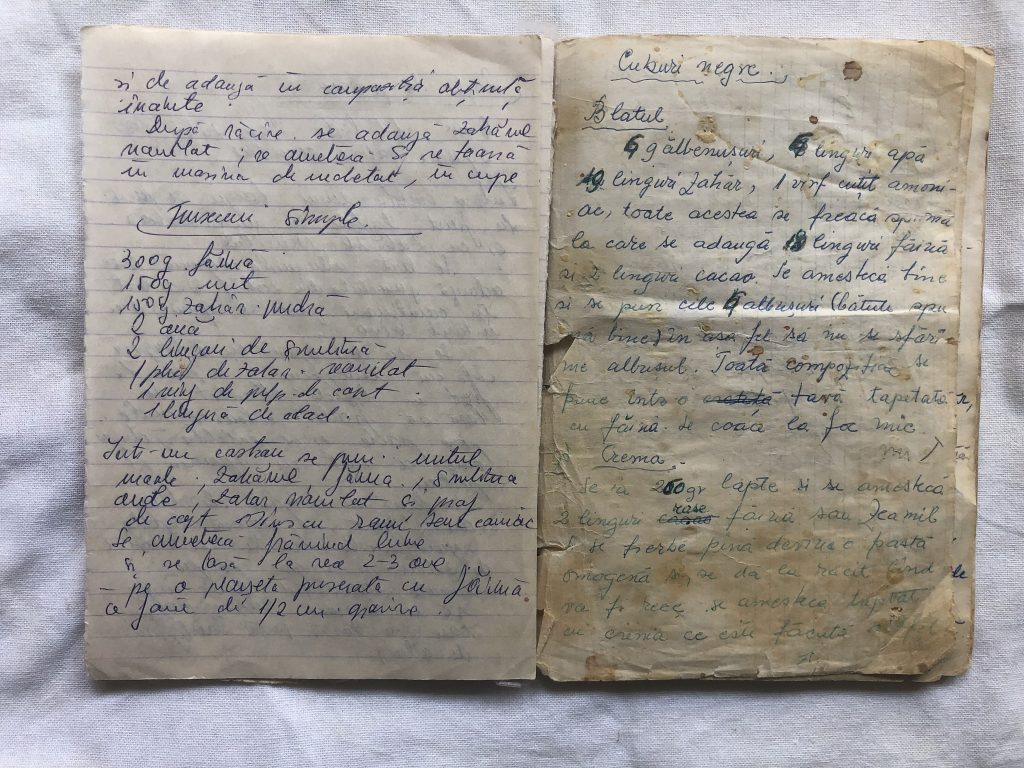 și se adaugă în compoziția obținută
înainte.
După răcire se adaugă zahărul
vanilat, se amestecă și se toarnă
în mașina de înghețat, în cupe
Fursecuri simple.
300g făină
150g unt
150g zahăr pudră
2 ouă
2 linguri de smântână
1 plic de zahar vanilat
1 de copt
1 lingură de
Într-un castron se pun: untul
moale, zahărul, făina, smântîna
ouăle, zahar vanilat și praf
de copt
Se amestecă
și se lasă la rece 2-3 ore
- pe o planșetă presărată cu făină
1/2 cm
Cuburi negre.
Blatul
6 gălbenușuri, 6 linguri apă
linguri zahăr, 1 vîrf cuțit amoni-
ac, toate acestea se freacă spumă
la care se adaugă 18 linguri făină
și 2 linguri cacao. Se amestecă bine
și se pun cele 6 albușuri (bătute spu
mă bine) în așa fel să nu se sfărî-
me albușul. Toată compoziția se
pune într-o tavă tapetată
cu făină. Se coace la foc mic.
Crema
Se ia 250gr lapte și se amestecă
2 linguri rase făină sau
și se fierbe pînă devine o pastă
omogenă și se dă la răcit cînd
va fi rece se amestecă
cu crema ce este făcută